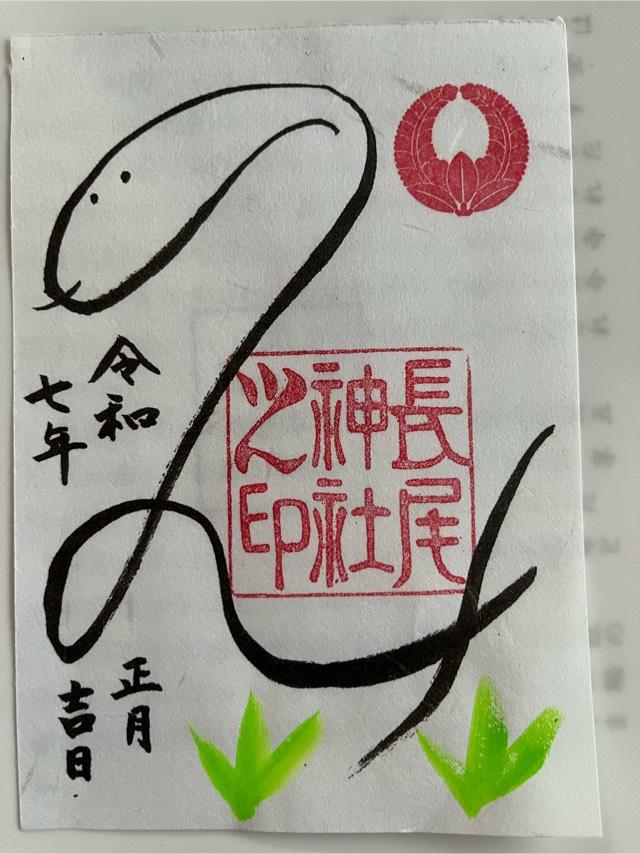 み
長尾
神社
之印
令和
七年
正月
吉日